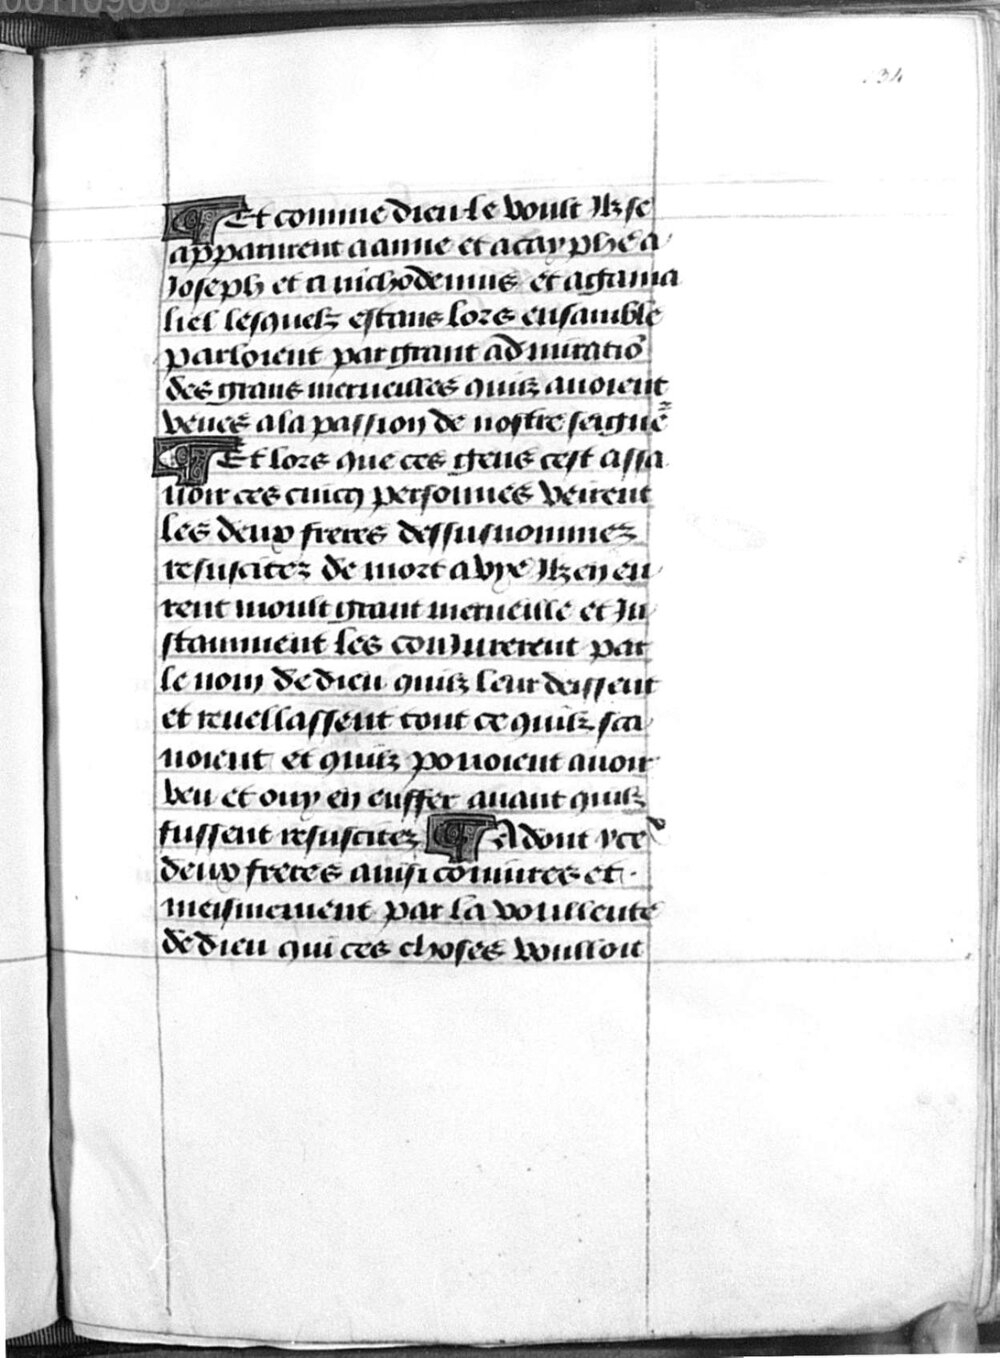 134
¶ Et comme dieu le voult Ilz se
apparurent a anne et a cayphe a
Joseph et a nichodemus et a gama
liel lesquelz estans lors ensamble
parloient par grant admiratiõ
des grans merueilles quilz auoient
veues a la passion de nostre seignẽ
¶ Et lors que ces gens cest assa
uoir ces cincq personnes veirent
les deux freres dessusnommez
resuscitez de mort a vye Ilz en eu
rent moult grant merueille et In
stamment les coniurerent par
le nom de dieu quilz leur deissent
et reuellassent tout ce quilz sca
uoient et quilz pouoient auoir
veu et ouy en enffer auant quilz
fussent resuscitez ¶ Adont yce
deux freres ainsi coniures et
meismement par la voullente
de dieu qui ces choses voulloit